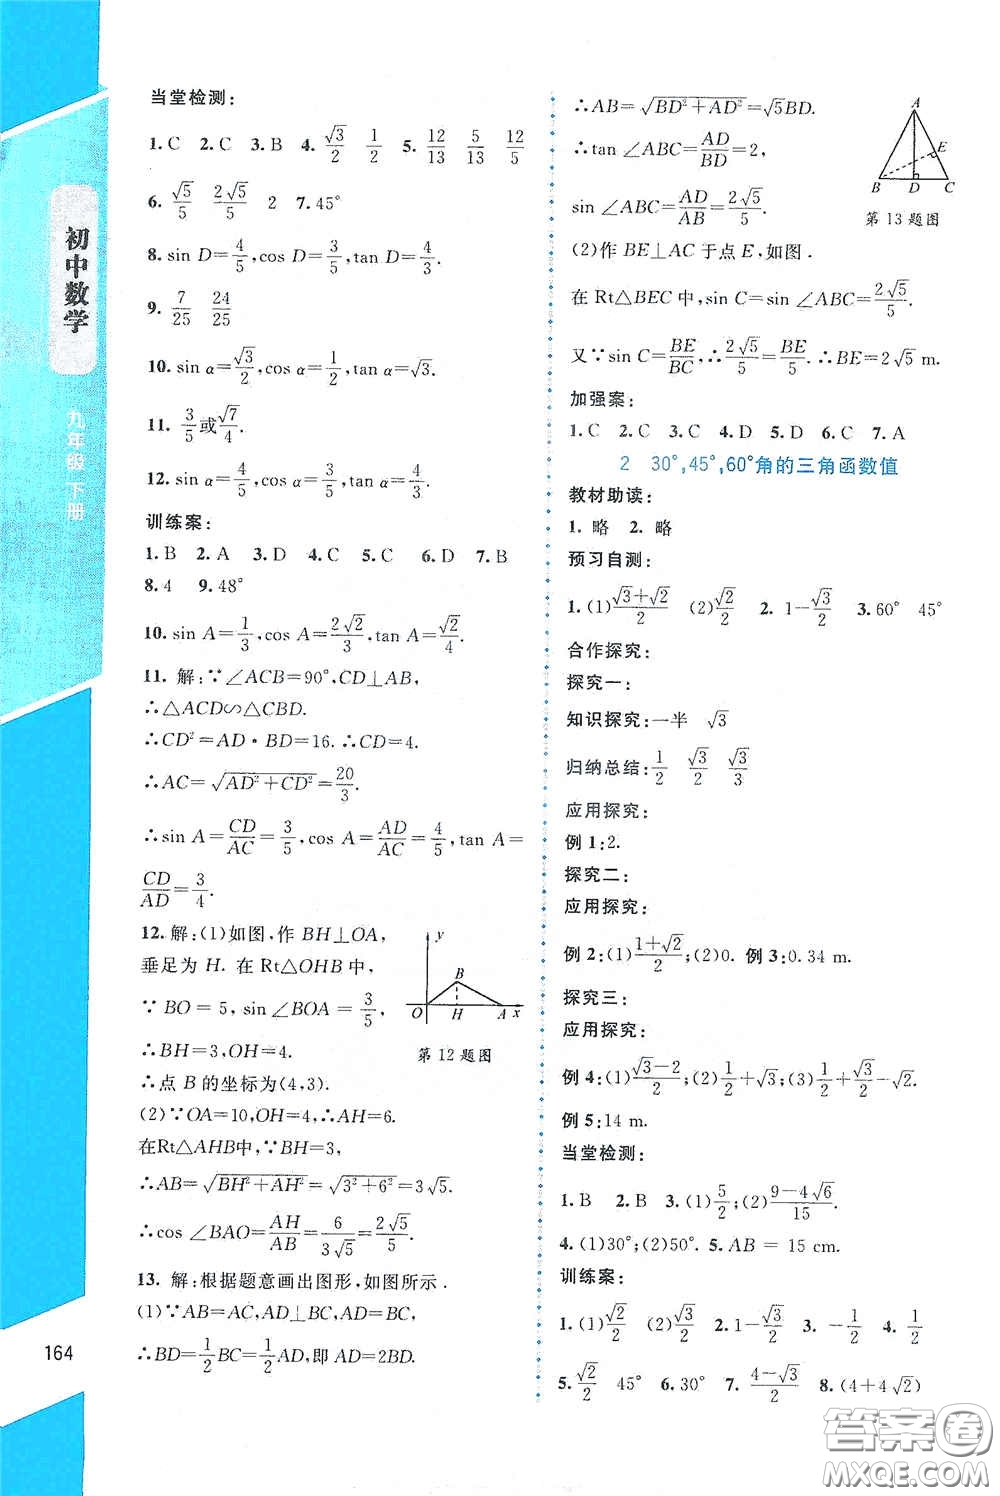 初中数学
九年级 下册
164
当堂检测:
1. C 2. C 3. B 4. √3/2 1/2 5. 12/13 5/13 12/5
6. √5/5 2√5/5 2 7. 45°
8. sin D=4/5, cos D=3/5, tan D=4/3.
9. 7/25 24/25
10. sin α=√3/2, cos α=1/2, tan α=√3.
11. 3/5或√7/4.
12. sin α=4/5, cos α=3/5, tan α=4/3.
训练案:
1. B 2. A 3. D 4. C 5. C 6. D 7. B
8. 4 9. 48°
10. sin A=1/3, cos A=2√2/3, tan A=√2/4.
11. 解:∵∠ACB=90°,CD⊥AB,
∴△ACD∽△CBD.
∴CD²=AD·BD=16. ∴CD=4.
∴AC=√(AD²+CD²)=20/3.
∴sin A=CD/AC=3/5, cos A=AD/AC=4/5, tan A=
CD/AD=3/4.
12. 解:(1)如图,作 BH⊥OA,
垂足为 H. 在 Rt△OHB 中,
∵ BO = 5, sin∠BOA = 3/5,
∴BH=3,OH=4.
∴点 B 的坐标为(4,3).
y
B
O H A x
第 12 题图
(2)∵OA=10,OH=4,∴AH=6.
在Rt△AHB中,∵BH=3,
∴AB=√(BH²+AH²)=√(3²+6²)=3√5.
∴cos ∠BAO=AH/AB=6/(3√5)=2√5/5.
13. 解:根据题意画出图形,如图所示.
(1)∵AB=AC,AD⊥BC,AD=BC,
∴BD=1/2BC=1/2AD,即 AD=2BD.
∴AB=√(BD²+AD²)=√5BD.
∴tan ∠ABC=AD/BD=2,
sin ∠ABC=AD/AB=2√5/5.
A
E
B D C
第 13 题图
(2)作 BE⊥AC 于点 E,如图.
在 Rt△BEC 中,sin C=sin ∠ABC=2√5/5.
又∵sin C=BE/BC,∴2√5/5=BE/5.∴BE=2√5 m.
加强案:
1. C 2. C 3. C 4. D 5. D 6. C 7. A
2 30°,45°,60°角的三角函数值
教材助读:
1. 略 2. 略
预习自测:
1. (1)(√3+√2)/2 (2)√2/2 2. 1-√3/2 3. 60° 45°
合作探究:
探究一:
知识探究:一半 √3
归纳总结:1/2 √3/2 √3/3
应用探究:
例 1:2.
探究二:
应用探究:
例 2:(1)(1+√2)/2;(2)0. 例 3:0.34 m.
探究三:
应用探究:
例 4:(1)(√3-2)/2;(2)1/2+√3;(3)1/2+√3/2-√2.
例 5:14 m.
当堂检测:
1. B 2. B 3. (1)5/2;(2)(9-4√6)/15.
4. (1)30°;(2)50°. 5. AB = 15 cm.
训练案:
1. (1)√2/2 (2)√3/2 2. 1-√3/2 3. -1/2 4. 1/2
5. √2/2 45° 6. 30° 7. (4-√3)/2 8. (4+4√2)
答案圈
MXQE.COM